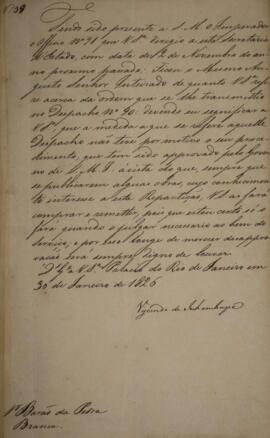 Nº 39
Tendo sido presente a S. M. o Imperador
o Officio Nº 71 que V Sª dirigio a esta Secretaria
d'Estado, com data de 12 de Novembro do an-
no proximo passado: Ficou o Mesmo Au-
gusto Senhor Inteirado de quanto V Sª expõe
acerca da ordem que se lhe transmittio
no Despacho Nº 90. Devendo eu significar a
V Sª, que a medida a que se refere aquelle
Despacho não teve por motivo o seu proce-
dimento, que tem sido approvado pelo Gover-
no de S. M. I. e sim do que, sempre que
se publicarem algumas obras, cujo conhecimen-
to interesse a esta Repartição, V Sª as fará
comprar e remetter, pois que estou certo só o
fará quando o julgar necessario ao bem do
serviço, e por isso longe de merecer desappro-
vação será sempre digno de louvor.
D' Gª a V Sª Palacio do Rio de Janeiro em
30 de Janeiro de 1826
Visconde de Inhambupe
Sr Barão da Pedra
Branca.